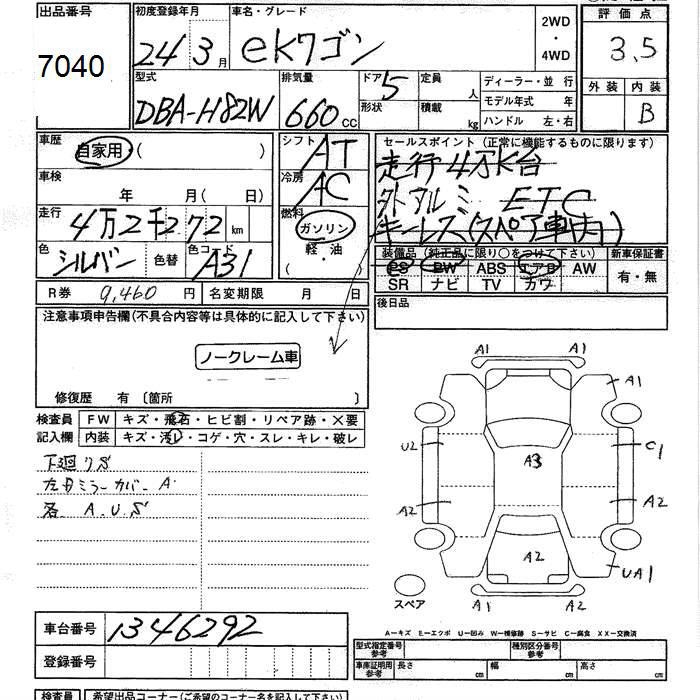 出品番号 初度登録年月 車名・グレード 2WD・4WD 評価点
7040 24年 3月 eKワゴン 3.5
型式 排気量 ドア 5 定員 人 ディーラー・並 行 外装 内装
DBA-H82W 660 CC 形状 積載 kg モデル年式 年 B
ハンドル 左・右
車歴 自家用・( )
シフト AT
セールスポイント (正常に機能するものに限ります)
走行4万K台
車検 年 月( 日)
冷房 AC
外アルミ ETC
走行 4万2千272 km
燃料 ガソリン・軽・油 ( )
キーレス(スペア車内)
色 シルバー 色替 色コード A31
装備品 (純正品に限り○をつけて下さい) 新車保証書
PS PW ABS エアB AW 有・無
SR ナビ TV カワ
R券 9,460 円 名変期限 月 日
後日品
注意事項申告欄(不具合内容等は具体的に記入して下さい)
ノークレーム車
修復歴 有 〔箇所 〕
検査員 FW キズ・飛石・ヒビ割・リペア跡・X要
記入欄 内装 キズ・汚レ・コゲ・穴・スレ・キレ・破レ
下廻りS
左目ミラーカバーA
各 A.U.S
A1 A1
A1
U2 C1
A3
A2 A2
A2
UA1
スペア A1 A2
A-キズ E-エクボ U-凹み W-補修跡 S-サビ C-腐食 XX-交換済
車台番号 1346292
登録番号
型式指定番号 参考 種別区分番号 参考
車庫証明用 参考 長さ cm 幅 cm 高さ cm
検査員 希望出品コーナー(ご希望のコーナー名を記入下さい)